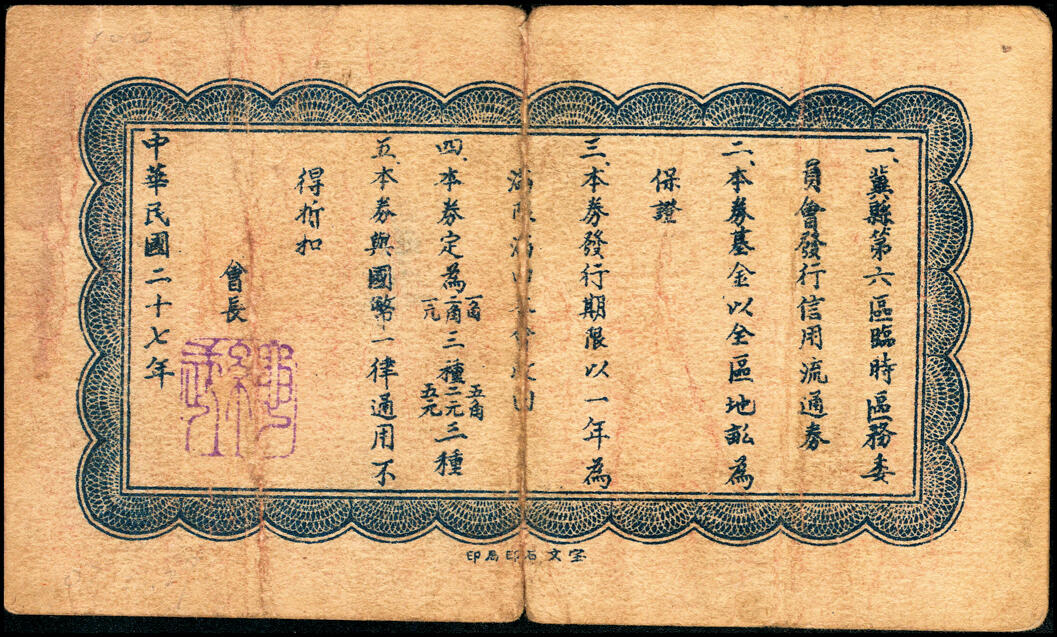 一、冀縣第六區臨時區務委
員會發行信用流通券
二、本券基金以全區地畝為
保證
三、本券發行期限以一年為
滿限滿由 收回
四、本券定為一角二角一元三種五角二元五元三種
五、本券與國幣一律通用不
得折扣
會長
中華民國二十七年
宝文石印局印